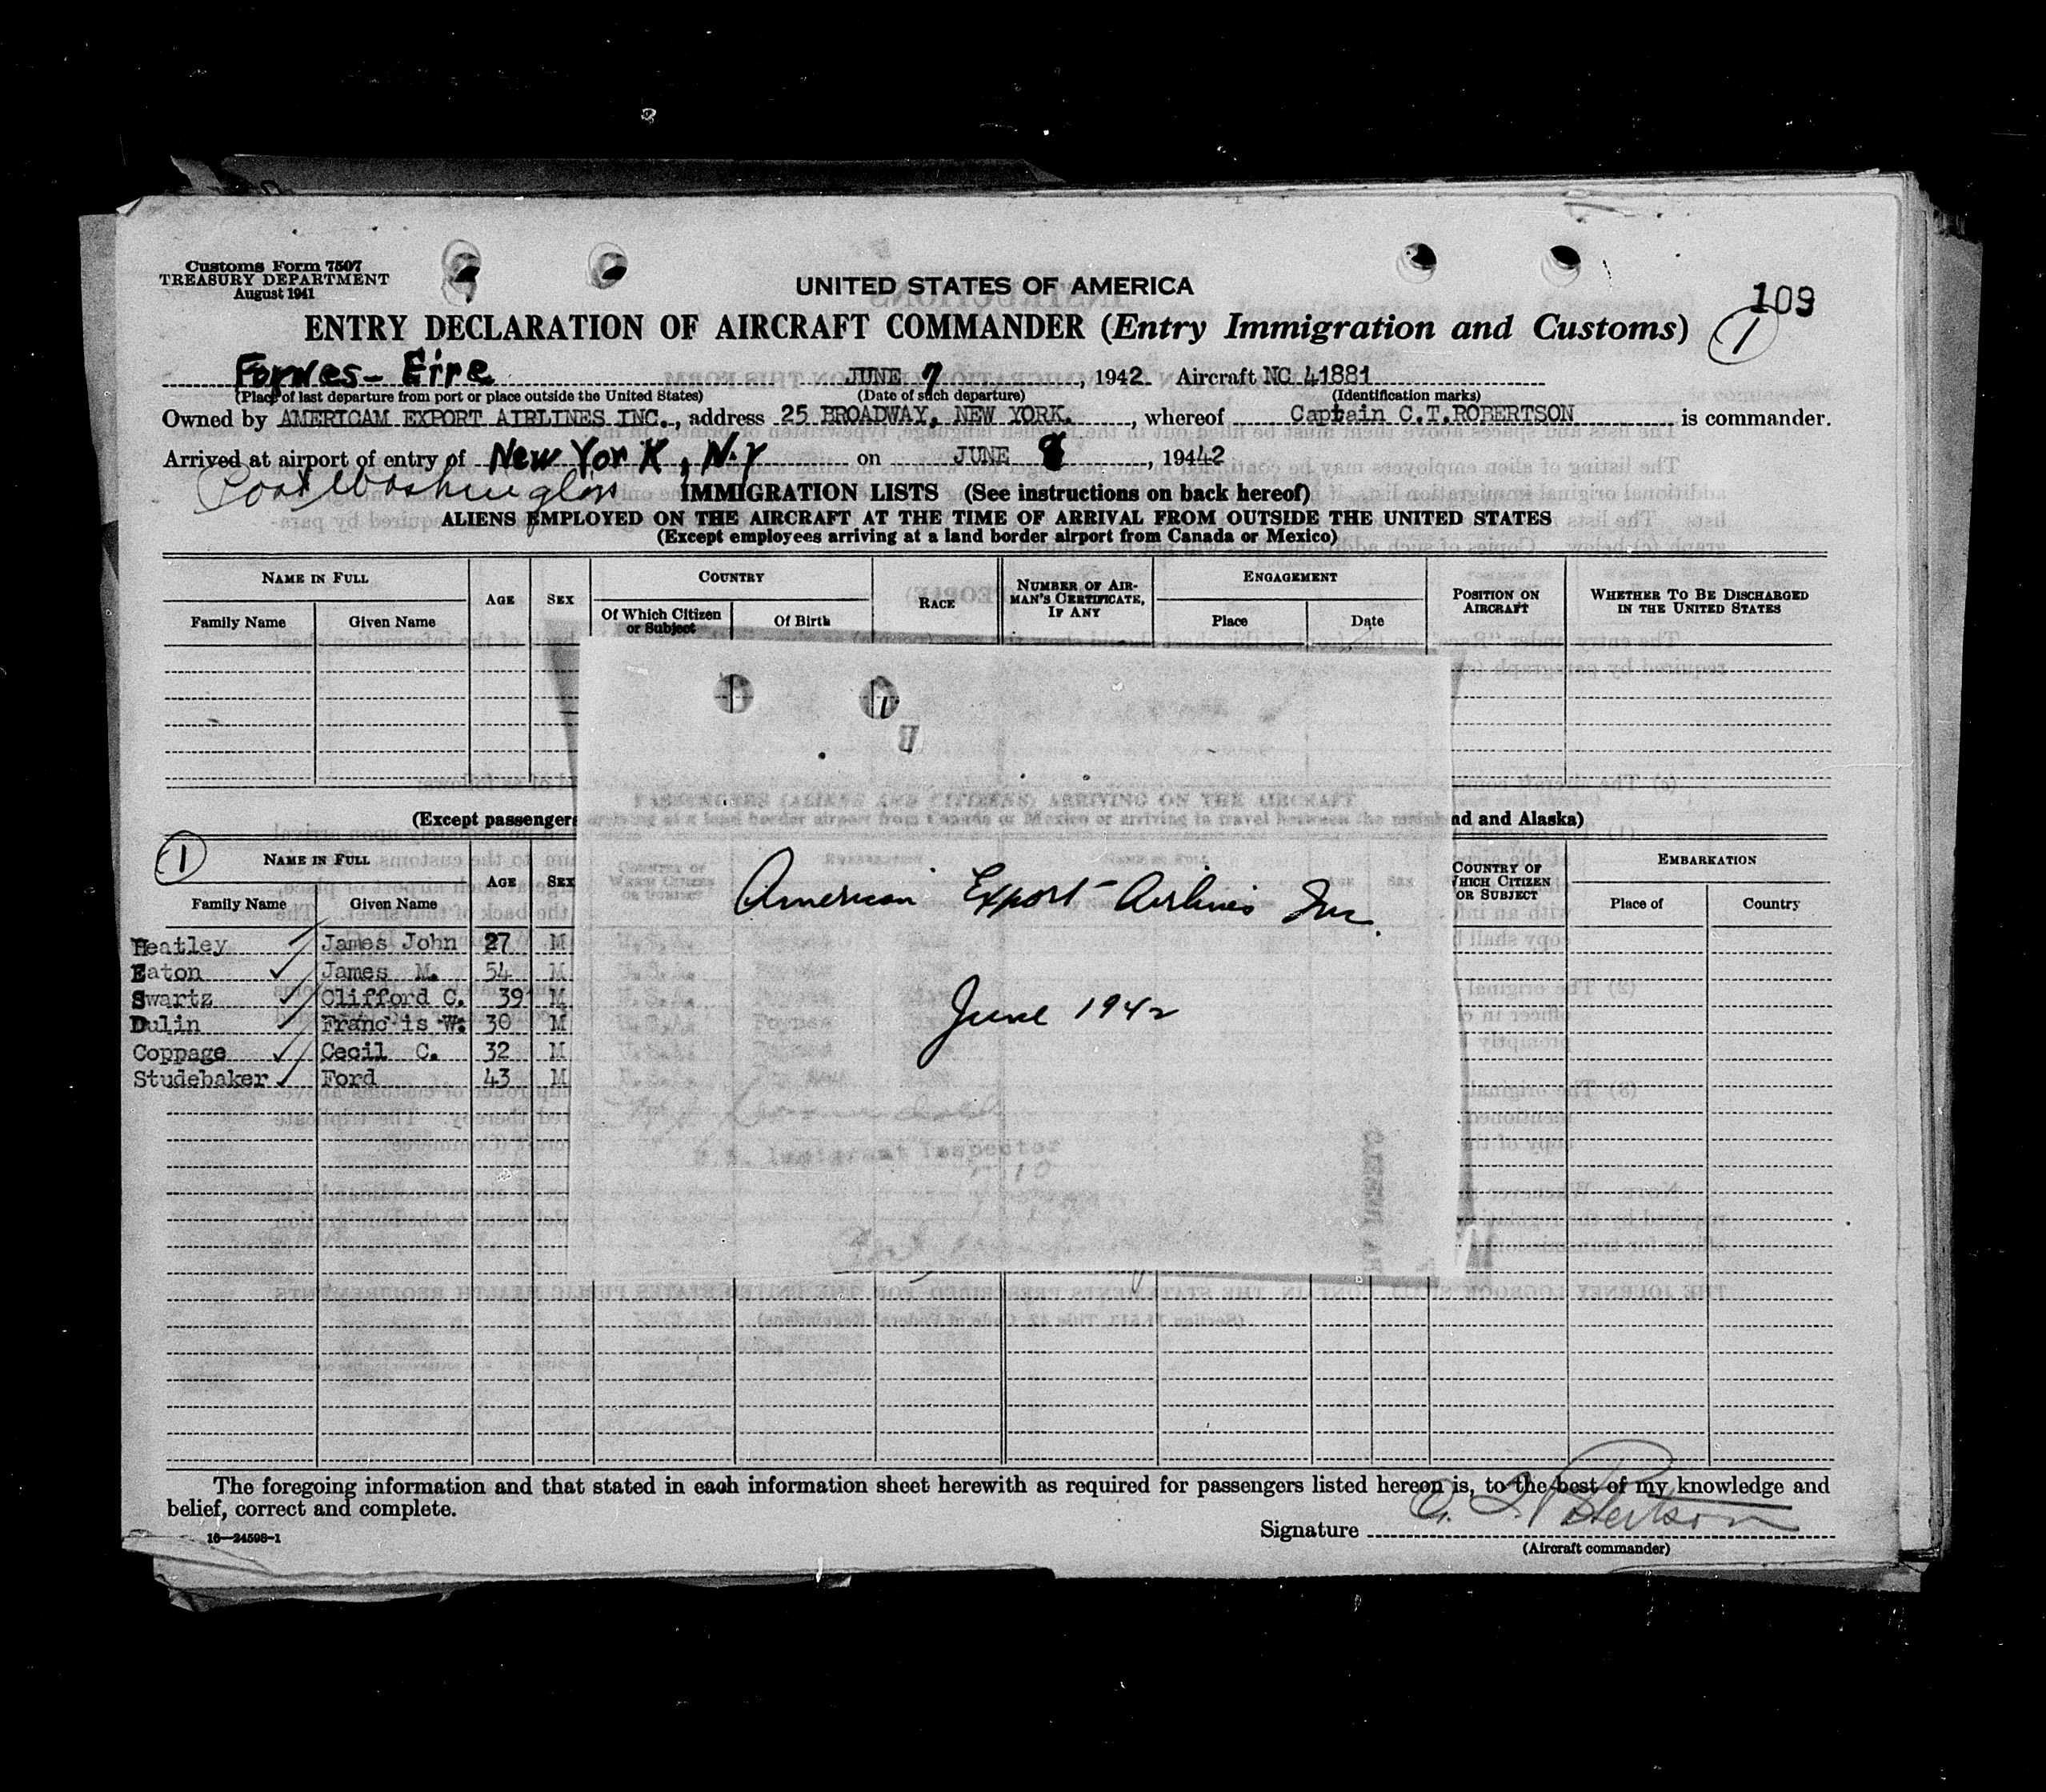 Customs Form 7507
TREASURY DEPARTMENT
August 1941
UNITED STATES OF AMERICA
109
ENTRY DECLARATION OF AIRCRAFT COMMANDER (Entry Immigration and Customs)
1
Foynes - Eire JUNE 7, 1942 Aircraft NC 41881
(Place of last departure from port or place outside the United States) (Date of such departure) (Identification marks)
Owned by AMERICAM EXPORT AIRLINES INC., address 25 BROADWAY, NEW YORK., whereof Captain C.T.ROBERTSON is commander.
Arrived at airport of entry of New York, N.Y on JUNE 8, 19442
Port Washington
IMMIGRATION LISTS (See instructions on back hereof)
ALIENS EMPLOYED ON THE AIRCRAFT AT THE TIME OF ARRIVAL FROM OUTSIDE THE UNITED STATES
(Except employees arriving at a land border airport from Canada or Mexico)
NAME IN FULL AGE SEX COUNTRY RACE NUMBER OF AIRMAN'S CERTIFICATE, IF ANY ENGAGEMENT POSITION ON AIRCRAFT WHETHER TO BE DISCHARGED IN THE UNITED STATES
Family Name Given Name Of Which Citizen or Subject Of Birth Place Date
PASSENGERS (ALIENS AND CITIZENS) ARRIVING ON THE AIRCRAFT
(Except passengers arriving at a land border airport from Canada or Mexico or arriving in travel between the nd and Alaska)
1
NAME IN FULL AGE SEX COUNTRY OF WHICH CITIZEN OR SUBJECT EMBARKATION
Family Name Given Name Place of Country
Heatley James John 27 M
Eaton James M. 54 M
Swartz Clifford C. 39 M
Dulin Francis W. 30 M
Coppage Cecil C. 32 M
Studebaker Ford 43 M
American Export Airlines Inc.
June 1942
U.S. Immigrant Inspector
The foregoing information and that stated in each information sheet herewith as required for passengers listed hereon is, to the best of my knowledge and
belief, correct and complete.
16—24598-1
Signature C. T. Robertson
(Aircraft commander)